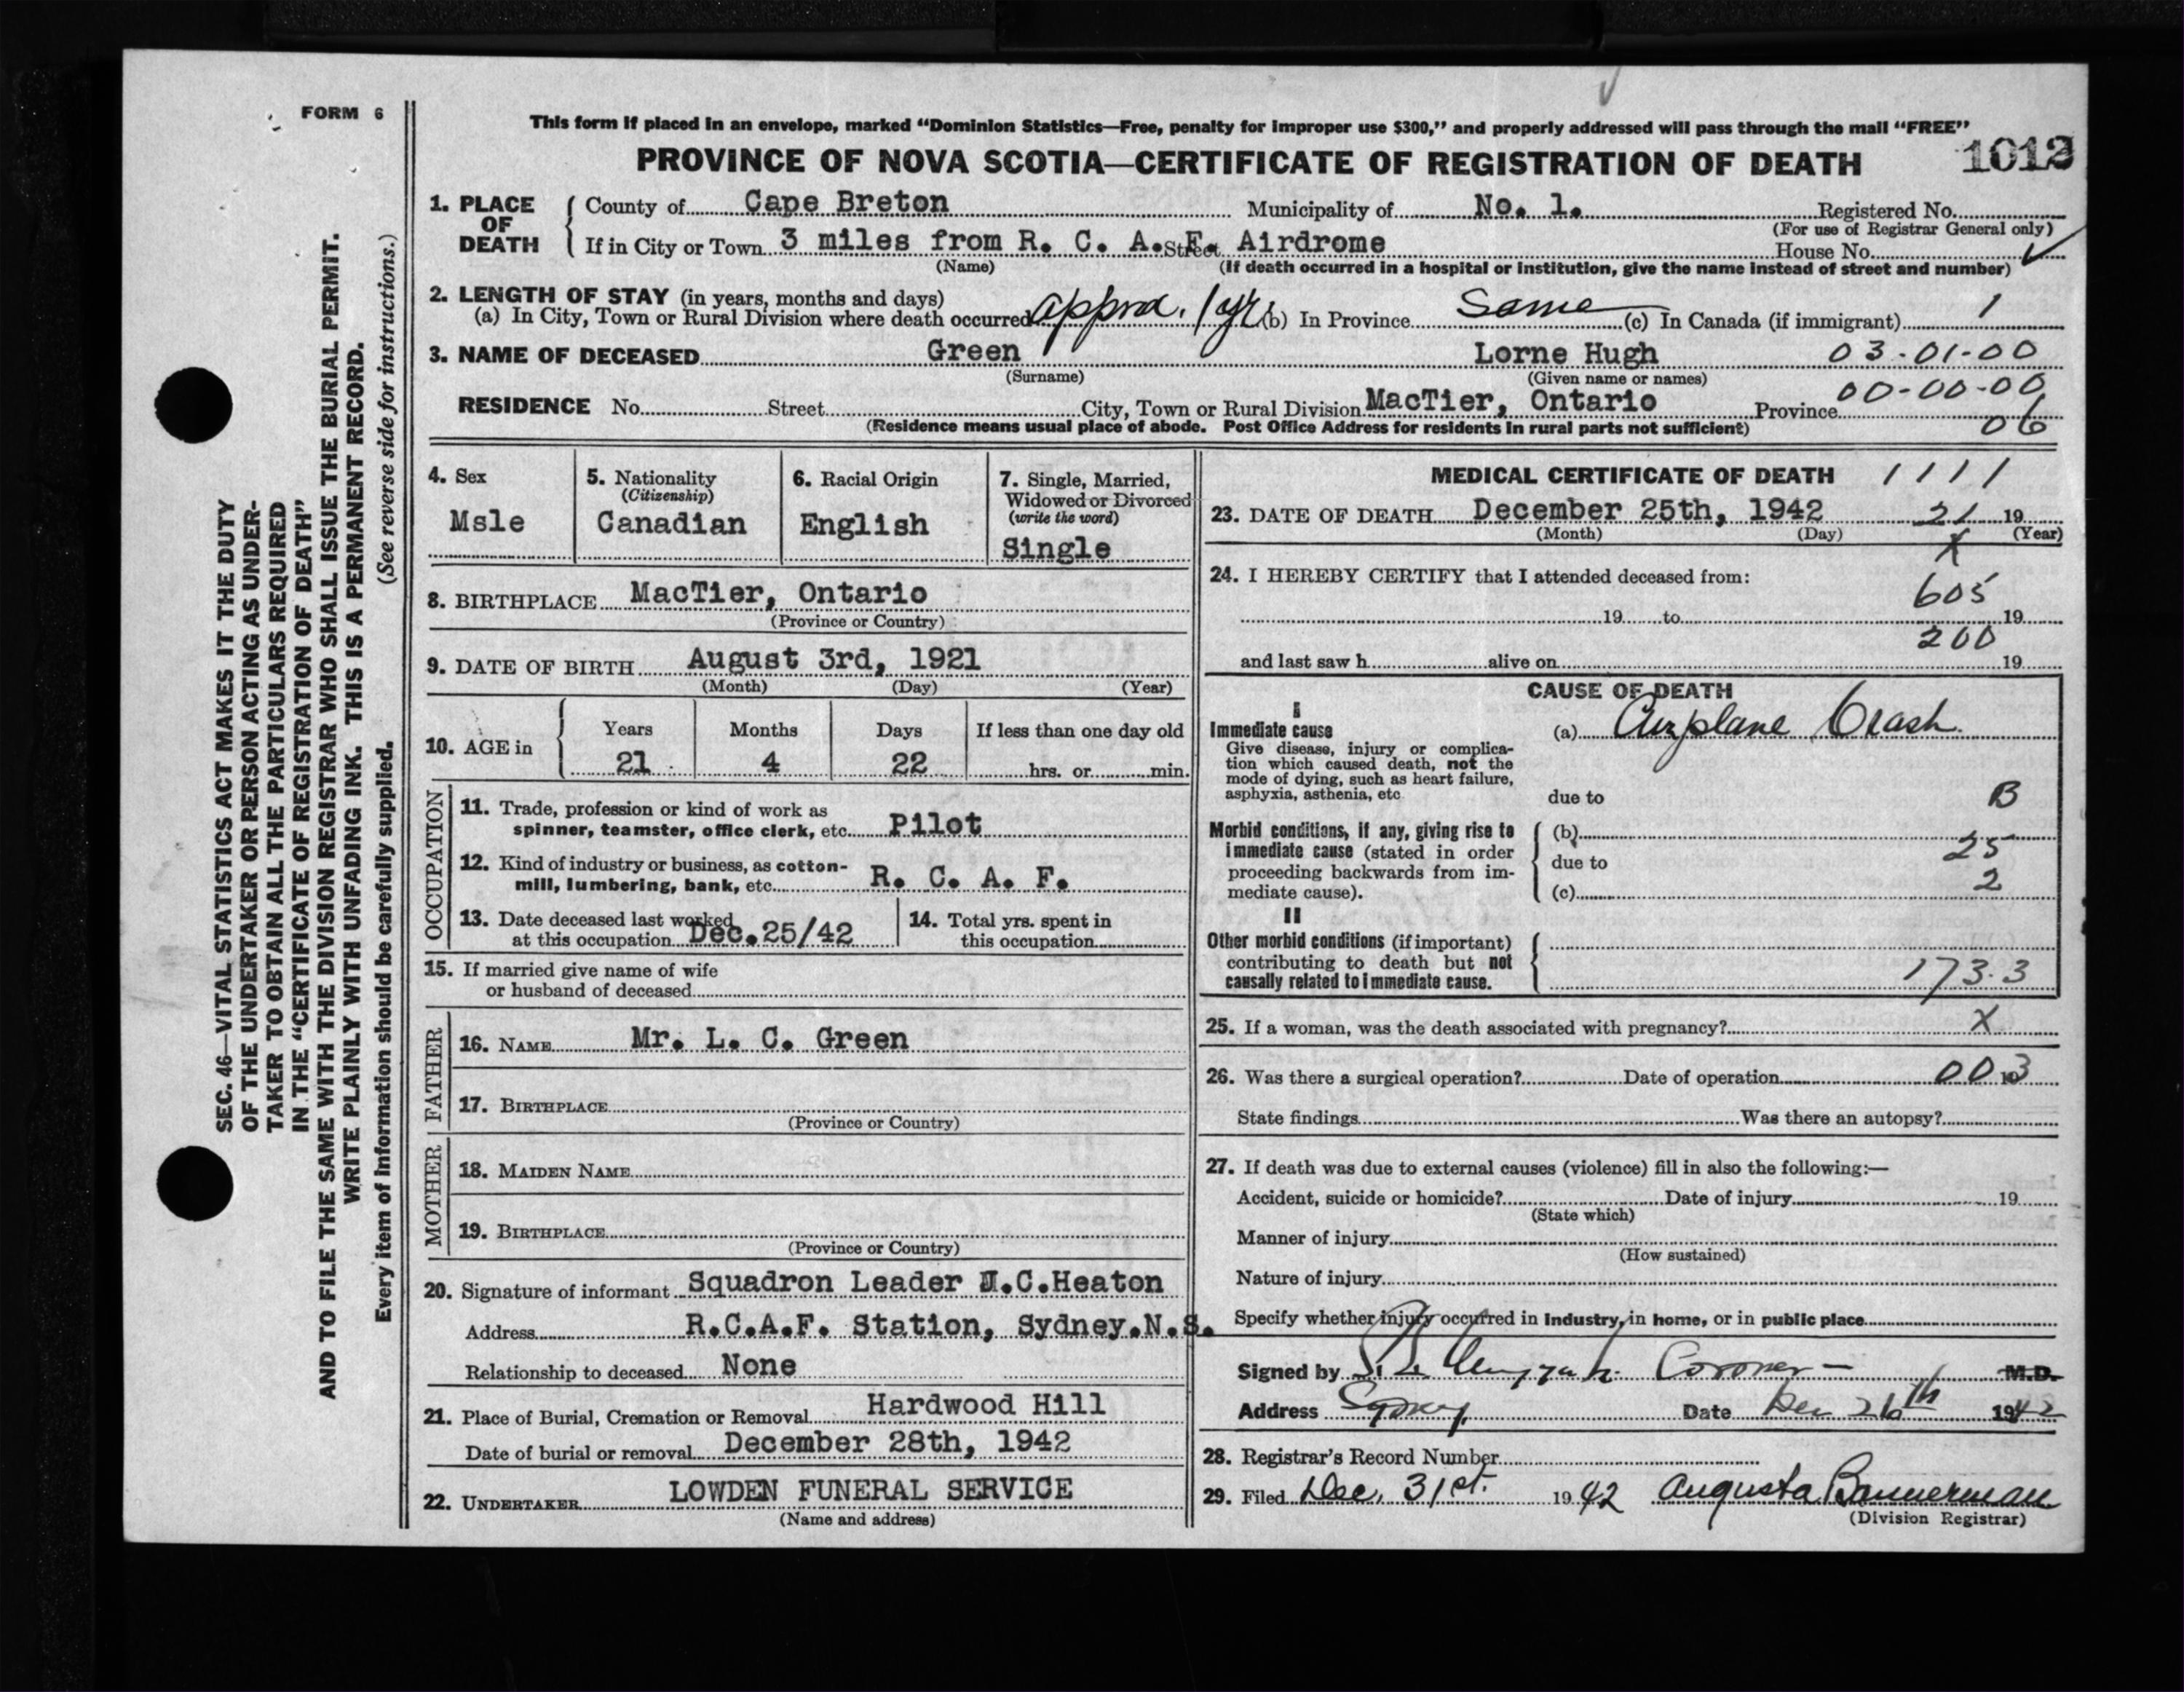 FORM 6
This form if placed in an envelope, marked “Dominion Statistics—Free, penalty for improper use $300,” and properly addressed will pass through the mail “FREE”
PROVINCE OF NOVA SCOTIA—CERTIFICATE OF REGISTRATION OF DEATH 1012
SEC. 46—VITAL STATISTICS ACT MAKES IT THE DUTY
OF THE UNDERTAKER OR PERSON ACTING AS UNDER-
TAKER TO OBTAIN ALL THE PARTICULARS REQUIRED
IN THE “CERTIFICATE OF REGISTRATION OF DEATH”
AND TO FILE THE SAME WITH THE DIVISION REGISTRAR WHO SHALL ISSUE THE BURIAL PERMIT.
WRITE PLAINLY WITH UNFADING INK. THIS IS A PERMANENT RECORD.
Every item of information should be carefully supplied. (See reverse side for instructions.)
1. PLACE OF DEATH
County of Cape Breton Municipality of No. 1. Registered No.
(For use of Registrar General only)
If in City or Town 3 miles from R. C. A. F. Airdrome Street House No.
(Name) (If death occurred in a hospital or institution, give the name instead of street and number)
2. LENGTH OF STAY (in years, months and days)
(a) In City, Town or Rural Division where death occurred approx. 1 yr (b) In Province Same (c) In Canada (if immigrant) 1
3. NAME OF DECEASED Green Lorne Hugh 03-01-00
(Surname) (Given name or names)
00-00-00
RESIDENCE No. Street City, Town or Rural Division MacTier, Ontario Province 06
(Residence means usual place of abode. Post Office Address for residents in rural parts not sufficient)
4. Sex
Msle
5. Nationality
(Citizenship)
Canadian
6. Racial Origin
English
7. Single, Married,
Widowed or Divorced
(write the word)
Single
8. BIRTHPLACE MacTier, Ontario
(Province or Country)
9. DATE OF BIRTH August 3rd, 1921
(Month) (Day) (Year)
10. AGE in
Years Months Days If less than one day old
21 4 22 hrs. or min.
OCCUPATION
11. Trade, profession or kind of work as
spinner, teamster, office clerk, etc. Pilot
12. Kind of industry or business, as cotton-
mill, lumbering, bank, etc. R. C. A. F.
13. Date deceased last worked
at this occupation Dec. 25/42
14. Total yrs. spent in
this occupation
15. If married give name of wife
or husband of deceased
FATHER
16. NAME Mr. L. C. Green
17. BIRTHPLACE
(Province or Country)
MOTHER
18. MAIDEN NAME
19. BIRTHPLACE
(Province or Country)
20. Signature of informant Squadron Leader J.C.Heaton
Address R.C.A.F. Station, Sydney.N.S.
Relationship to deceased None
21. Place of Burial, Cremation or Removal Hardwood Hill
Date of burial or removal December 28th, 1942
22. UNDERTAKER LOWDEN FUNERAL SERVICE
(Name and address)
MEDICAL CERTIFICATE OF DEATH 1111
23. DATE OF DEATH December 25th, 1942 21 19
(Month) (Day) (Year)
X
24. I HEREBY CERTIFY that I attended deceased from:
605
19 to 19
200
and last saw h alive on 19
CAUSE OF DEATH
I
Immediate cause
Give disease, injury or complica-
tion which caused death, not the
mode of dying, such as heart failure,
asphyxia, asthenia, etc
(a) Airplane Crash
due to B
Morbid conditions, if any, giving rise to
immediate cause (stated in order
proceeding backwards from im-
mediate cause).
(b) 25
due to 2
(c)
II
Other morbid conditions (if important)
contributing to death but not
causally related to immediate cause.
173.3
25. If a woman, was the death associated with pregnancy? X
26. Was there a surgical operation? Date of operation 003 19
State findings Was there an autopsy?
27. If death was due to external causes (violence) fill in also the following:—
Accident, suicide or homicide? Date of injury 19
(State which)
Manner of injury
(How sustained)
Nature of injury
Specify whether injury occurred in industry, in home, or in public place
Signed by Coroner — M.D.
Address Sydney Date Dec 26th 1942
28. Registrar's Record Number
29. Filed Dec. 31st. 1942 Augusta Bannerman
(Division Registrar)